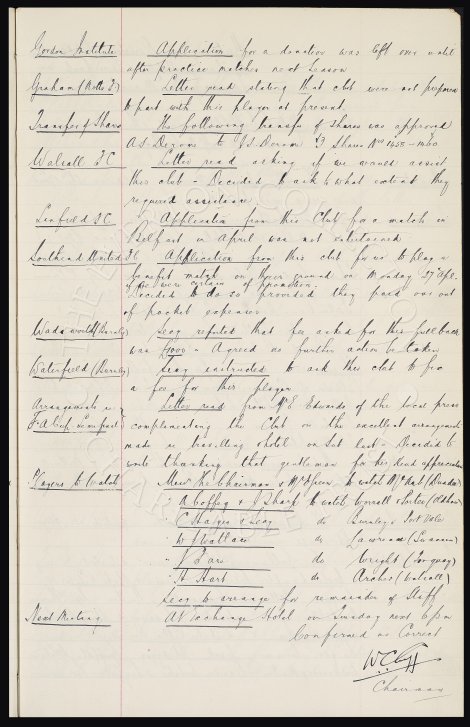 Gordon Institute Application for a donation was left over until
after practice matches next Season
Graham (Notts F) Letter read stating that club were not prepared
to part with this player at present.
Transfer of Shares The following transfer of shares was approved
to J.S. Shares Nos
Walsall F C Letter read asking if we would assist
this club - Decided to ask to what extent they
required assistance.
Linfield F.C. Application from this Club for a match in
Belfast in April was not entertained
Southend United F.C Application from this club for us to play a
benefit match on their ground on Monday 27th Apl.
if we were certain of promotion.
Decided to do so provided they paid our out
of pocket expenses
Wadsworth (Burnley) Secy reported that fee asked for this full back
was - Agreed no further action be taken
Waterfield (Burnley) Secy instructed to ask this club to fix
a fee for this player
Arrangements re Letter read from Mr E Edwards of the local press
F.A Cup complimenting the Club on the excellent arrangements
made re travelling & hotel on Sat last - Decided to
write thanking that gentleman for his kind appreciation
Players to Watch Messrs the Chairman & Mr to watch (Dundee)
A Coffey & J Sharp to watch & (Oldham)
C Hayes & Secy do Burnley & Port Vale
W J Wallace do (Swansea)
do Wright (Torquay)
H Hart do Archie (Walsall)
Secy to arrange for remainder of Staff
Next Meeting At Exchange Hotel on Tuesday next 6 pm
Confirmed as Correct
W.C. Cuff
Chairman